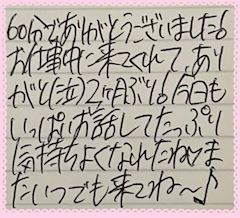 60分でありがとうございました。
お仕事中に来てくれて、あり
がとう(泣)2ヶ月ぶり。今日も
いっぱいお話してたっぷり
気持ちよくなれたねっま
たいつでも来てね〜♪